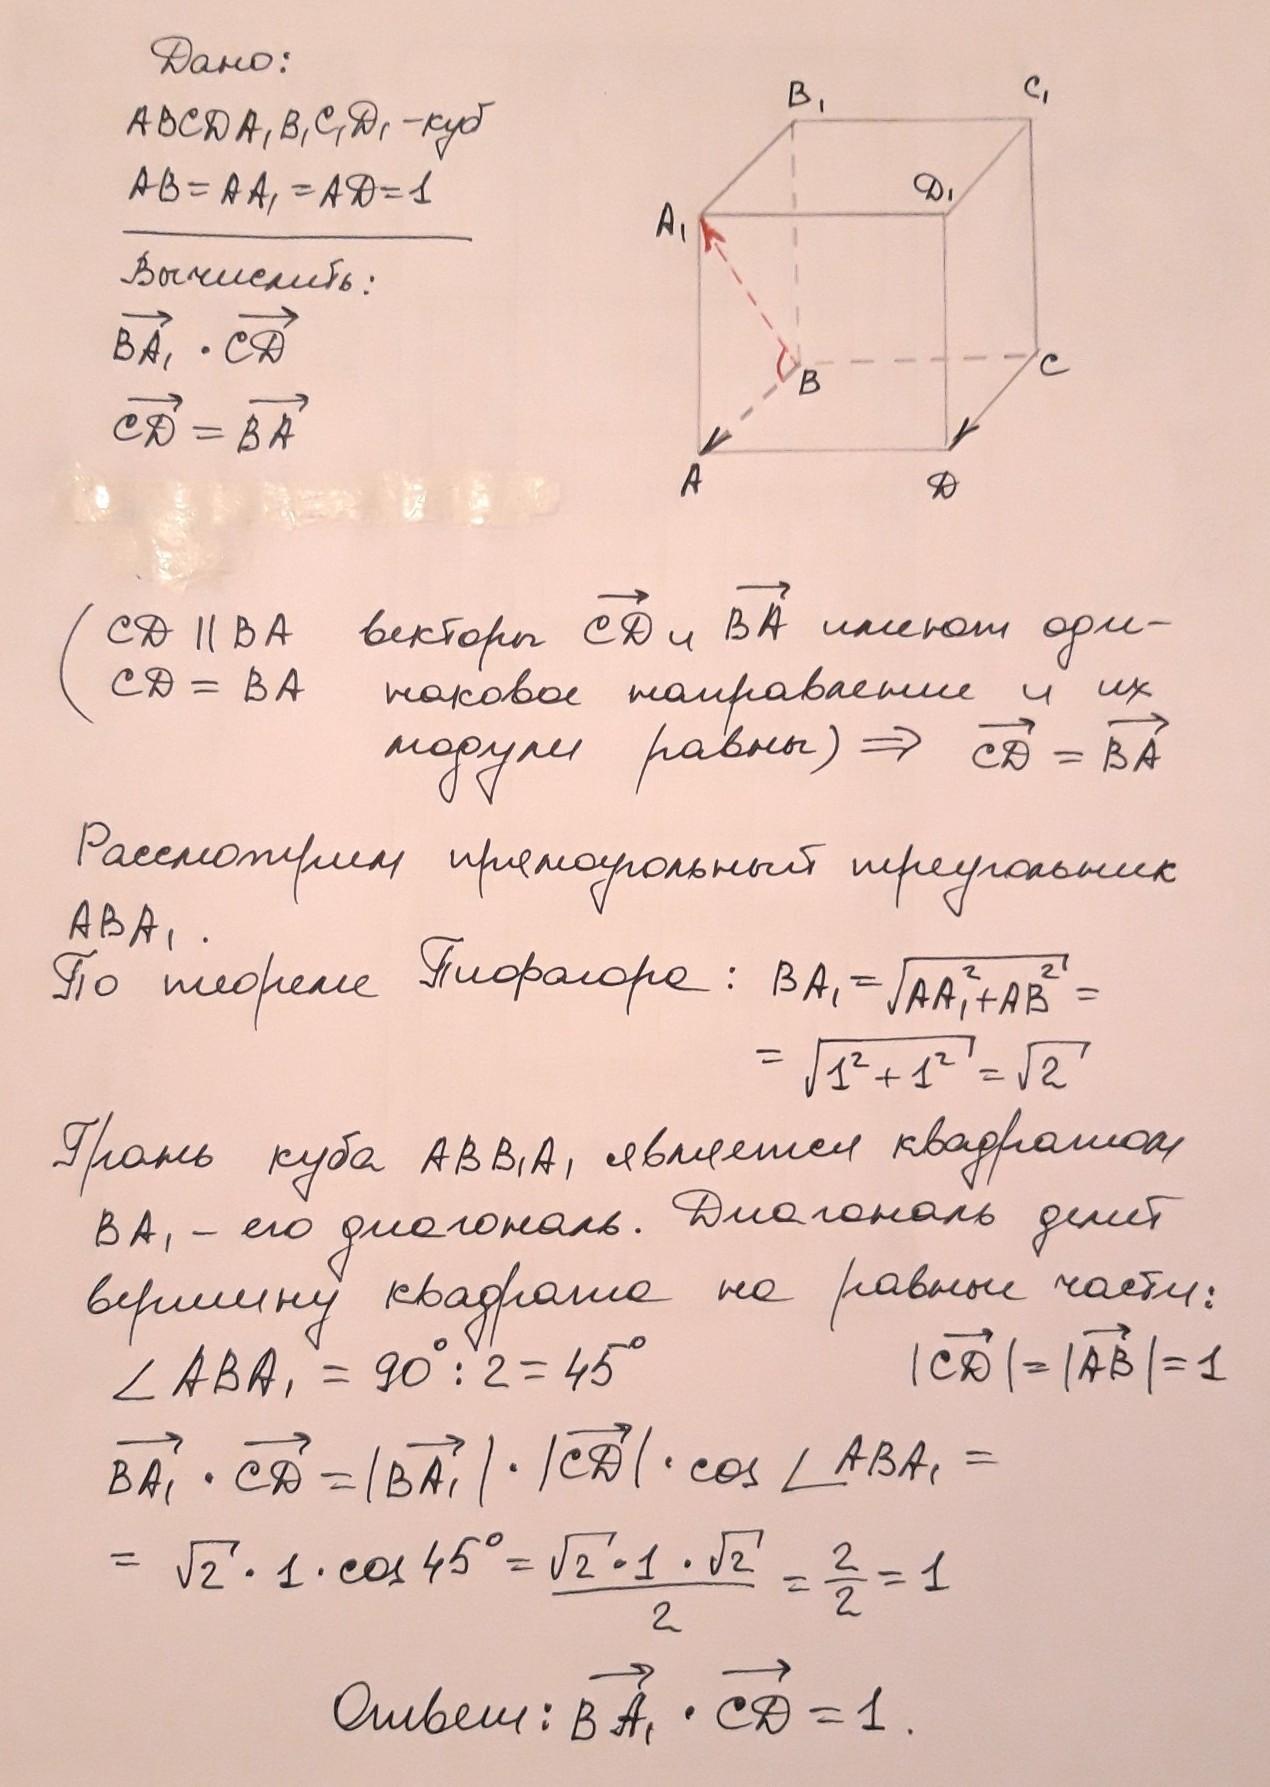 Дано:
ABCDA₁B₁C₁D₁ - куб
AB = AA₁ = AD = 1
Вычислить:
BA₁ · CD
CD = BA
B₁
C₁
A₁
D₁
B
C
A
D
(CD || BA векторы CD и BA имеют оди-
CD = BA наковое направление и их
модули равны) ⇒ CD = BA
Рассмотрим прямоугольный треугольник
ABA₁.
По теореме Пифагора: BA₁ = √(AA₁² + AB²) =
= √(1² + 1²) = √2
Грань куба ABB₁A₁ является квадратом
BA₁ - его диагональ. Диагональ делит
вершину квадрата на равные части:
∠ABA₁ = 90° : 2 = 45° |CD| = |AB| = 1
BA₁ · CD = |BA₁| · |CD| · cos ∠ABA₁ =
= √2 · 1 · cos 45° = √2 · 1 · √2 / 2 = 2/2 = 1
Ответ: BA₁ · CD = 1.